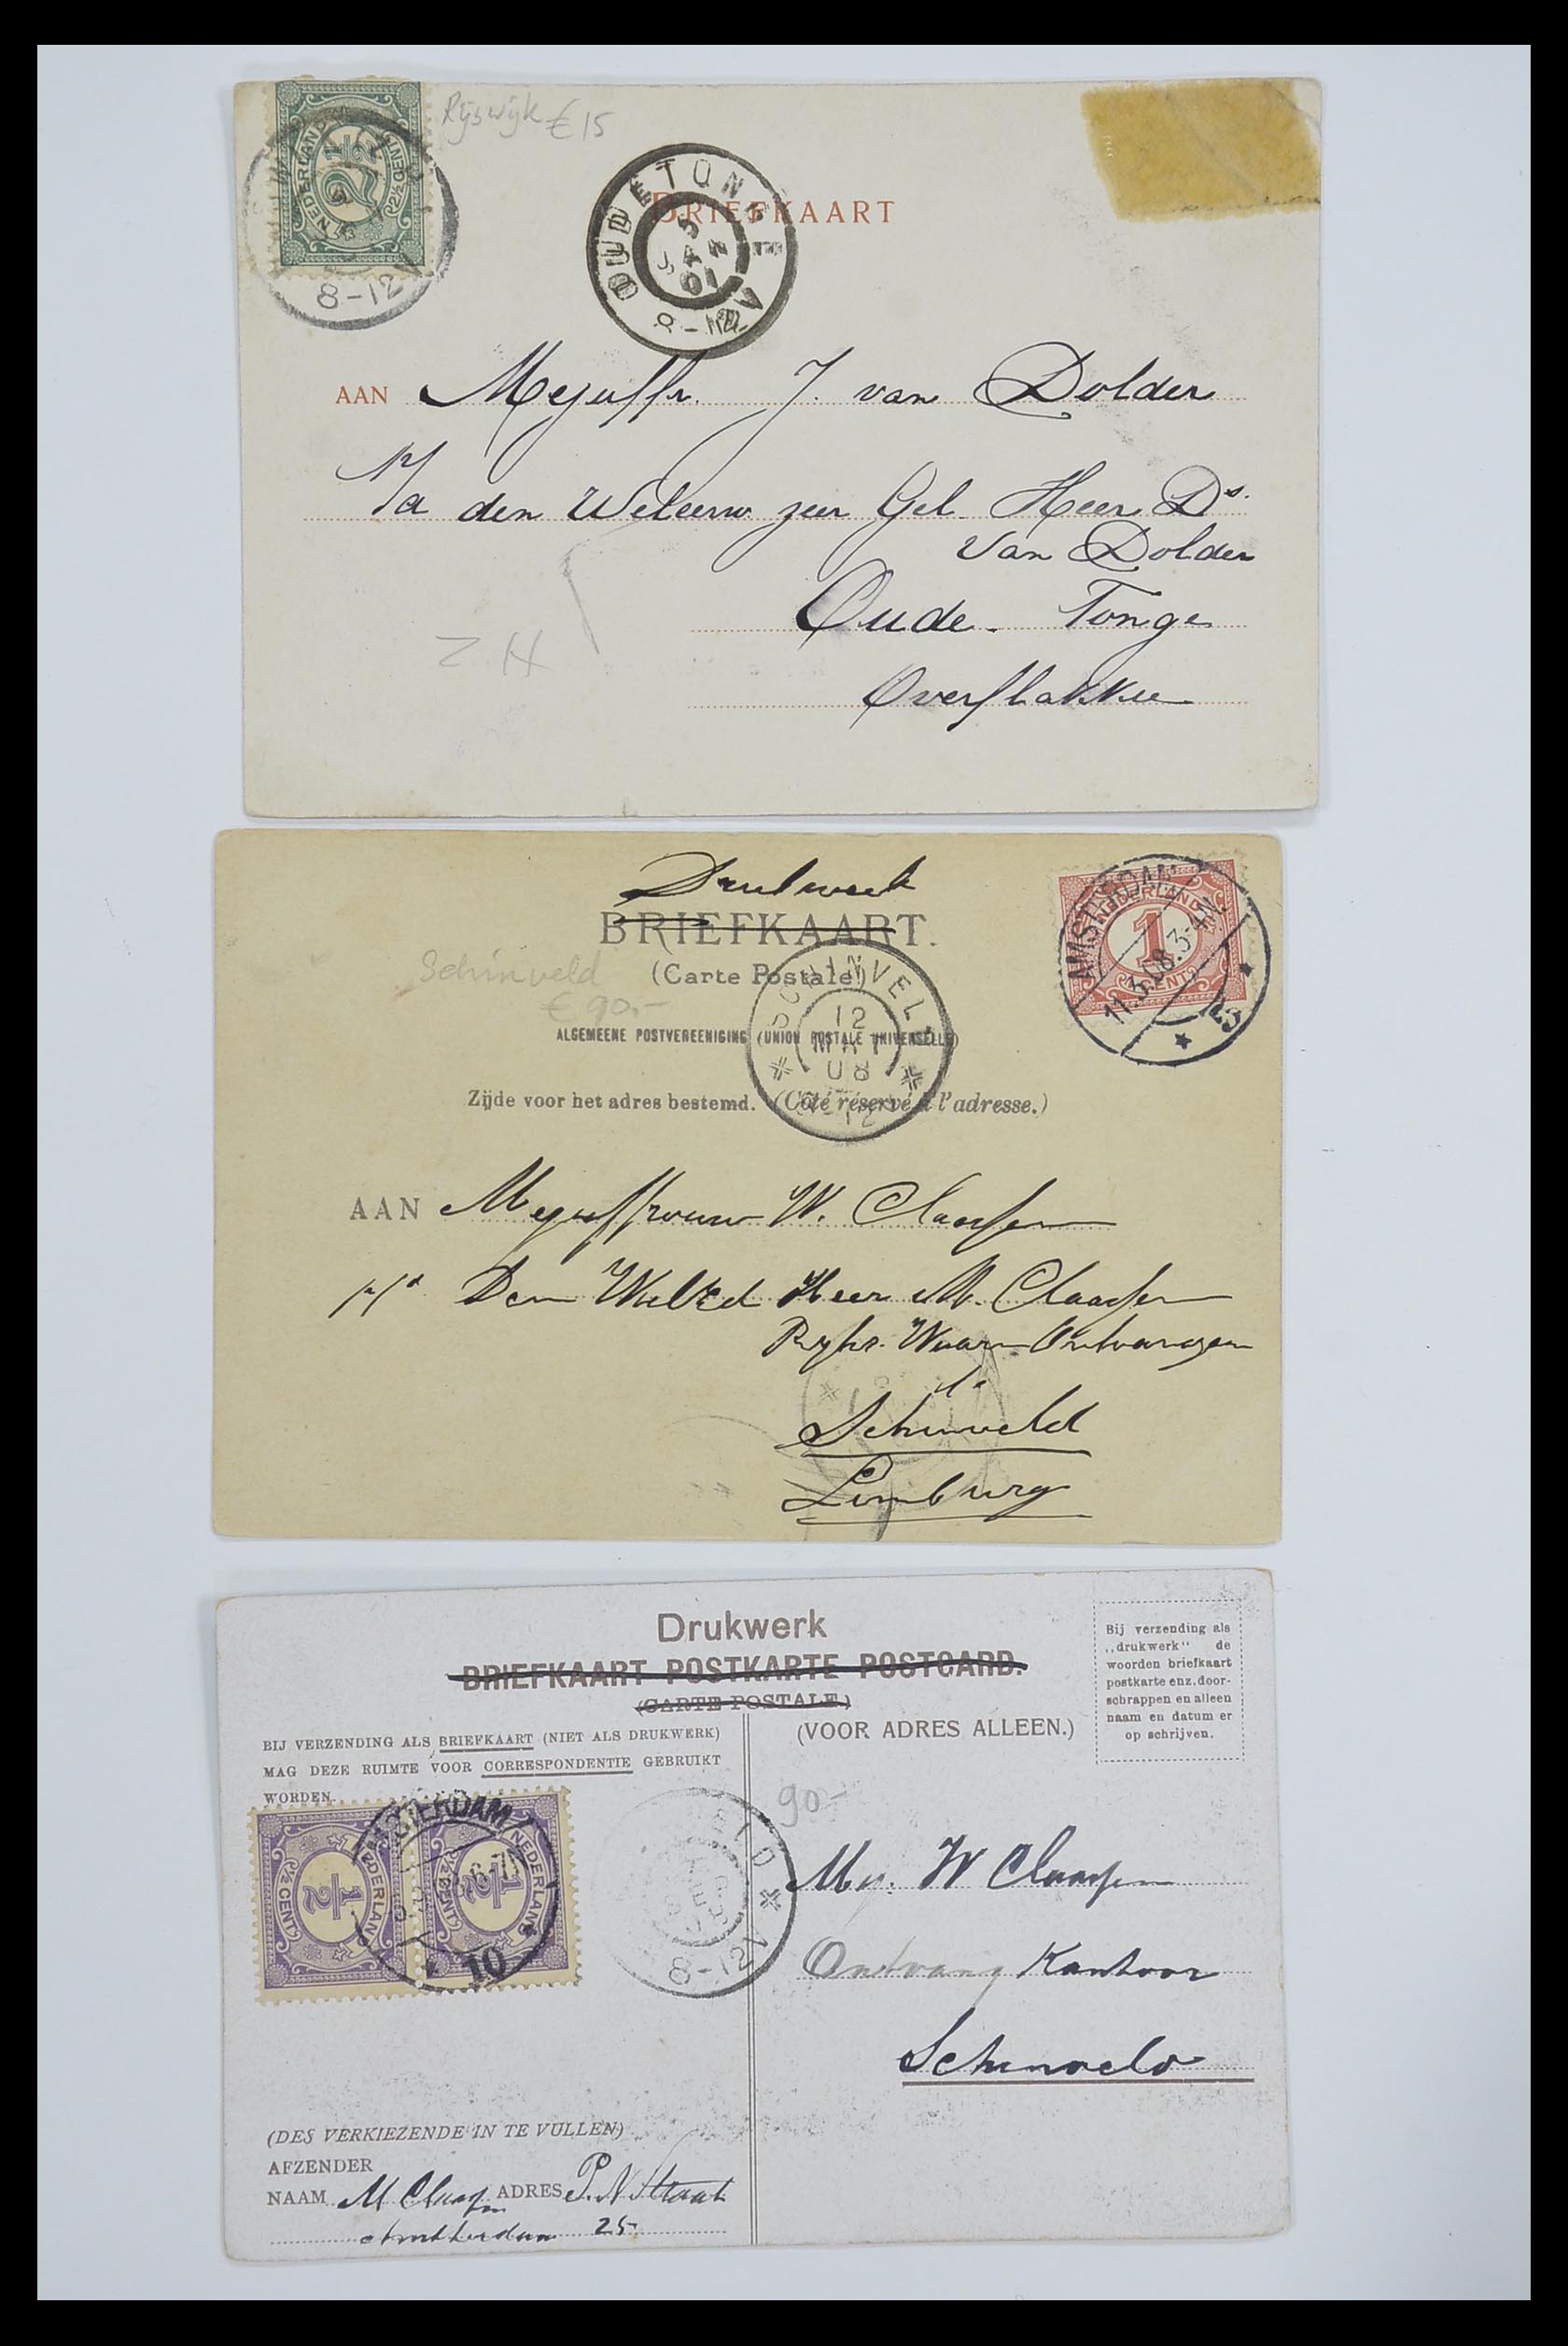 NEDERLAND
2½
(2½ CENT)
8-12V
Rijswijk € 15
OUDETONGE
5
JAN
01
8-12V
BRIEFKAART
AAN Mejuffr. J. van Dolder
p/a den Weleerw zeer Gel. Heer Ds.
van Dolder
Oude-Tonge
Overflakkee
ZH
Drukwerk
BRIEFKAART.
(Carte Postale)
Schinveld
€ 90.-
ALGEMEENE POSTVEREENIGING (UNION POSTALE UNIVERSELLE)
Zijde voor het adres bestemd. (Côté réservé à l'adresse.)
SCHINVELD
12
MRT
08
NEDERLAND
1
CENT
AMSTERDAM
11.3.08.3-4N.
AAN Mejuffrouw W. Claassen
p/a Den WelEd Heer M. Claassen
Rijks. Waarn Ontvanger
te
Schinveld
Limburg
Drukwerk
BRIEFKAART POSTKARTE POSTCARD.
(CARTE POSTALE.)
Bij verzending als
„drukwerk" de
woorden briefkaart
postkarte enz. door-
schrappen en alleen
naam en datum er
op schrijven.
BIJ VERZENDING ALS BRIEFKAART (NIET ALS DRUKWERK)
MAG DEZE RUIMTE VOOR CORRESPONDENTIE GEBRUIKT
WORDEN.
(VOOR ADRES ALLEEN.)
NEDERLAND
½
(½ CENT)
NEDERLAND
½
(½ CENT)
AMSTERDAM
10
8-12V
90-
Mej. W Claassen
Ontvang Kantoor
Schinveld
(DES VERKIEZENDE IN TE VULLEN)
AFZENDER
NAAM M Claassen ADRES P.N. Straat
Amsterdam 25